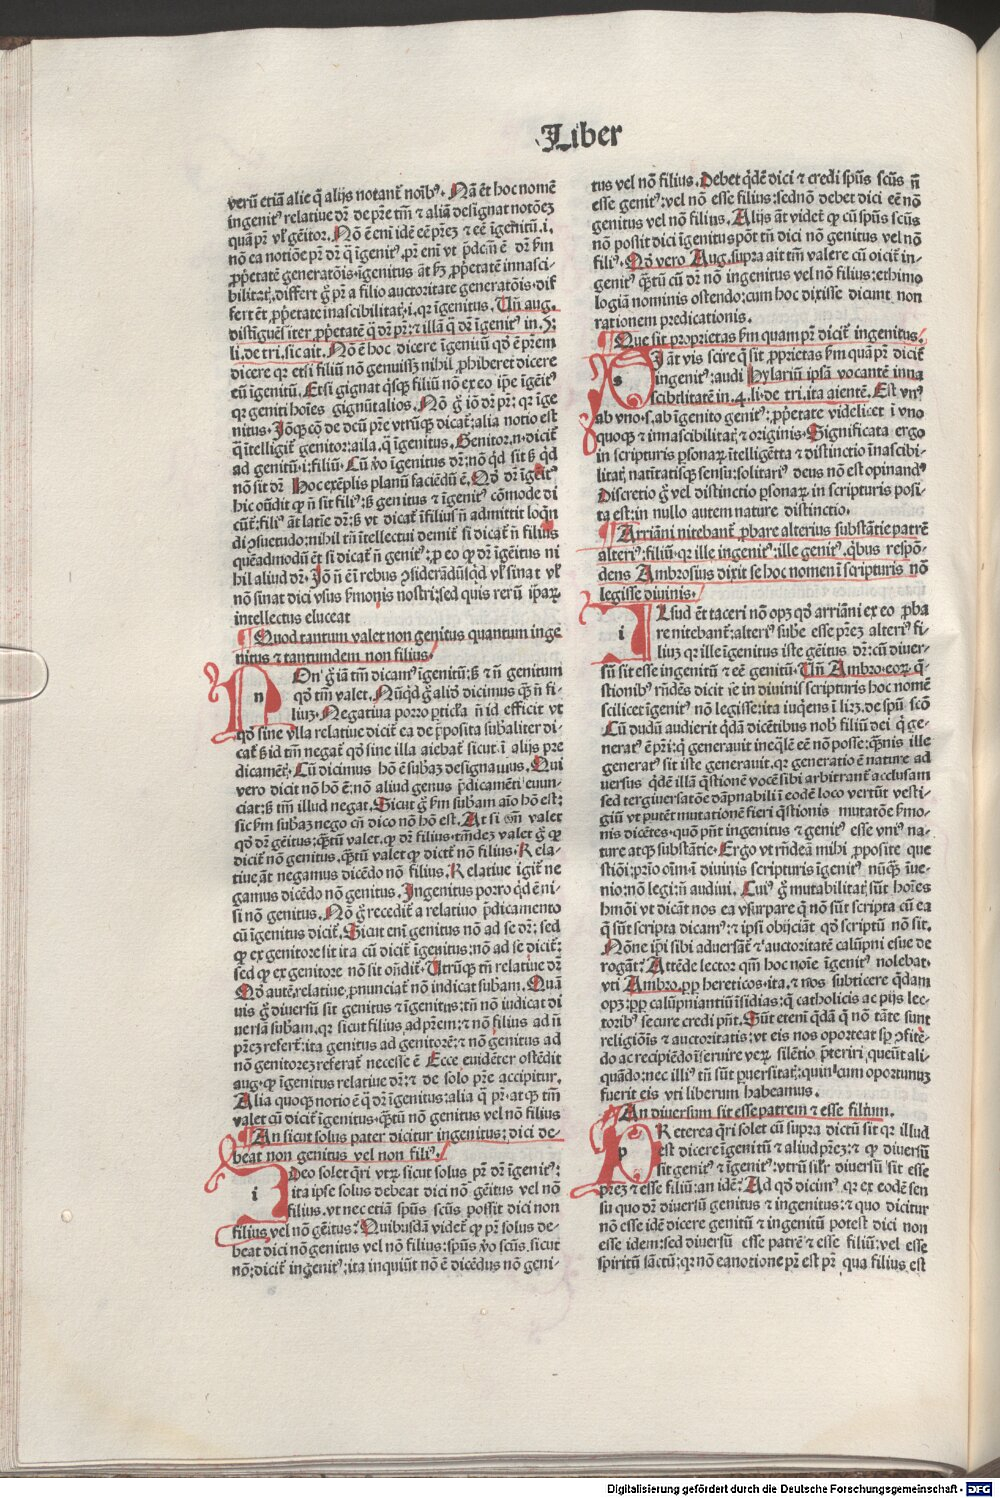 Liber
verũ etiã alie q̃ alijs notant᷑ noĩbꝰ. Nã ẽt hoc nomẽ
ingenitꝰ relatiue dr̃ de pr̃e tm̃ ⁊ aliã designat notõeʒ
quã pr̃ vł gẽitor. Nõ ẽ eni idẽ eẽ pr̃eʒ ⁊ eẽ ĩgenitũ .i.
nõ ea notiõe pr̃ dr̃ q̃ ĩgenitꝰ. pr̃ eni vt p̃dcm̃ ẽ dr̃ ẜm
ꝓp̃etatẽ generatõis. ĩgenitus ãt ẜʒ ꝓp̃etatẽ innasci-
bilitat᷑, differt g̃ pr̃ a filio auctoritate generatõis. dif
fert ẽt ꝓp̃etate inascibilitat᷑. i. qr ĩgenitus. Uñ aug.
distĩguẽs iter ꝓp̃etatẽ q̃ dr̃ pr̃: ⁊ illã q̃ dr̃ ĩgenitꝰ in .5.
li. de tri. sic ait. Nõ ẽ hoc dicere ĩgenitũ qđ ẽ pr̃em
dicere qr etsi filiũ nõ genuissʒ nihil ꝓhiberet dicere
eũ ĩgenitũ. Etsi gignat q̃sqʒ filiũ nõ ex eo ip̃e ĩgẽitꝰ
qr geniti hoĩes gignũt alios. Nõ g̃ iõ dr̃ pr̃: qr ĩge
nitus. Jõqʒ cõ̱ de deũ pr̃e vtrũqʒ dicat᷑: alia notio est
q̃ ĩtelligit᷑ genitor: aĩla. q̃ ĩgenitus. Genitor. n. dicit᷑
ad genitũ. i: filiũ. Cũ ꝟo ĩgenitus dr̃: nõ qđ sit ẜ qđ
nõ sit dr̃ Hoc exẽplis planũ faciẽdũ ẽ. Qđ dr̃ ĩgẽitꝰ
hic oñdit ꝙ ñ sit filiꝰ: ẜ genitus ⁊ ĩgenitꝰ cõmode di
cũt᷑: filiꝰ ãt latĩe dr̃: ẜ vt dicat᷑ ĩfilius ñ admittit loqñ
di ↄsuetudo: nihil tñ ĩtellectui demit᷑ si dicat᷑ ñ filius
quẽadmodũ ẽt si dicat᷑ ñ genitꝰ: ꝓ eo ꝙ dr̃ ĩgẽitus ni
hil aliud dr̃. Jõ ñ ẽ ĩ rebus ↄsiderãdũ qđ vł sinat vł
nõ sinat dici vsus ẜmonis nostri: sed quis rerũ ip̃aꝝ
intellectus eluceat
Quod tantum valet non genitus quantum inge
nitus ⁊ tantundem non filius.
NOn g̃ iã tm̃ dicamꝰ ĩgenitũ: ẜ ⁊ ñ genitum
qđ tm̃ valet. Nũqđ g̃ aliđ dicimus qʒ̃ ñ fi-
liuʒ. Negatiua porro ꝑticla ñ id efficit vt
qđ sine vlla relatiue dicit᷑ ea de p̃posita subãliter di-
cat᷑ ẜ id tm̃ negat᷑ qđ sine illa aiebat᷑ sicut ĩ alijs pre
dicamẽt᷑. Cũ dicimus hõ ẽ subaʒ designamus. Qui
vero dicit nõ hõ ẽ: nõ aliud genus p̃dicamẽti enun-
ciat: ẜ tm̃ illud negat. Sicut g̃ ẜm subam aio hõ est:
sic ẜm subaʒ nego cũ dico nõ hõ est. At si tm̃ valet
qđ dr̃ gẽitus: q̃tũ valet. ꝙ dr̃ filius. tãdeʒ valet g̃ ꝙ
dicit᷑ nõ genitus. q̃tũ valet ꝙ dict᷑ nõ filius. Rela-
tiue ãt negamus dicẽdo nõ filius. Relatiue igit᷑ ne
gamus dicẽdo nõ genitus. Ingenitus porro qđ ẽ ni-
si nõ genitus. Nõ g̃ recedit᷑ a relatiuo p̃dicamento
cũ ĩgenitus dicit᷑. Sicut eni genitus nõ ad se dr̃: sed
ꝙ ex genitore sit ita cũ dicit᷑ ĩgenitus: nõ ad se dicit᷑:
sed ꝙ ex genitore nõ sit oñdit᷑. Utrũqʒ tñ relatiue dr̃
Qđ autẽ relatiue ꝓnunciat᷑ nõ indicat subam. Quã
uis g̃ diuersũ sit genitus ⁊ ĩgenitus: tñ nõ iudicat di
uersã subam, qr sicut filius ad pr̃em: ⁊ nõ filius ad ñ
pr̃eʒ refert᷑: ita genitus ad genitorẽ: ⁊ nõ genitus ad
nõ genitoreʒ referat᷑ necesse ẽ Ecce euidẽter ostẽdit
aug. ꝙ ĩgenitus relatiue dr̃: ⁊ de solo pr̃e accipitur.
Alia quoqʒ notio ẽ q̃ dr̃ ĩgenitus: alia q̃ pr̃. at qʒ tm̃
valet cũ dicit᷑ ĩgenitus. q̃tũ nõ genitus vel nõ filius
An sicut solus pater dicitur ingenitus: dici de-
beat non genitus vel non filiꝰ.
IDeo solet q̃ri vtꝝ sicut solus pr̃ dr̃ ĩgenitꝰ:
ita ipse solus debeat dici nõ gẽitus vel nõ
filius. vt nec etiã spũs scũs possit dici non
filius vel nõ gẽitus. Quibusdã videt᷑ ꝙ pr̃ solus de-
beat dici nõ genitus vel nõ filius: spũs ꝟo scũs. sicut
nõ: dicit᷑ ingenitꝰ: ita inquiũt nõ ẽ dicẽdus nõ geni-
tus vel nõ filius. Debet q̃dẽ dici ⁊ credi spũs scũs ñ
esse genitꝰ: vel nõ esse filius: sed nõ debet dici eẽ nõ
genitus vel nõ filius. Alijs ãt videt᷑ ꝙ cũ spũs scũs
nõ possit dici ĩgenitus põt tñ dici nõ genitus vel nõ
filiꝰ. Qđ vero Aug. supra ait tm̃ valere cũ dicit᷑ in-
genitꝰ q̃tũ cũ dr̃ nõ ingenitus vel nõ filius: ethimo
logiã nominis ostendo: cum hoc dixisse dicunt non
rationem predicationis.
Que sit proprietas ẜm quam pr̃ dicit᷑ ingenitus.
SI ãt vis scire q̃ sit ꝓprietas ẜm quã pr̃ dicit᷑
ingenitꝰ: audi Hylariũ ipsã vocantẽ inna
scibilitatẽ in .4. li. de tri. ita aientẽ. Est vnꝰ
ab vno. s. ab ĩgenito genitꝰ: ꝓp̃etate videlicet ĩ vno
quoqʒ ⁊ innascibilitat᷑ ⁊ originis. Significata ergo
in scripturis ꝑsonaꝝ ĩtelligẽtia ⁊ distinctio ĩnascibi-
litat᷑ natĩtatisqʒ sensu: solitariꝰ deus nõ est opinandꝰ
Discretio g̃ vel distinctio ꝑsonaꝝ in scripturis posi-
ta est: in nullo autem nature distinctio.
Arriãni nitebant᷑ ꝓbare alterius substãtie patrẽ
alteriꝰ: filiũ. qr ille ingenitꝰ: ille genitꝰ. q̃bus respõ-
dens Ambrosius dixit se hoc nomen ĩ scripturis nõ
legisse diuinis.
ILlud ẽt taceri nõ opʒ qđ arriãni ex eo ꝓba
re nitebant᷑: alteriꝰ sube esse pr̃eʒ alteriꝰ fi-
liuʒ qr ille ĩgenitus iste gẽitus dr̃: cũ diuer-
sũ sit esse ingenitũ ⁊ eẽ genitũ. Uñ Ambro. eoꝝ q̃-
stionibꝰ rñdẽs dicit se in diuinis scripturis hoc nomẽ
scilicet ĩgenitꝰ nõ legisse: ita iuq̃ens ĩ lirʒ. de spũ scõ
Cũ dudũ audierit q̃dã dicẽtibus nob̃ filiũ dei q̃ ge-
neratꝰ ẽ pr̃i: q̃ generauit ineq̃lẽ eẽ nõ posse: q̃nis ille
generatꝰ sit iste generauit. qr generatio ẽ nature ad
versus q̃dẽ illã q̃stionẽ vocẽ sibi arbitrant᷑ acclusam
sed tergiuersatõe dãpnabili ĩ eodẽ loco vertũt vesti-
giũ vt putẽt mutationẽ fieri q̃stionis mutatõe ẜmo-
nis dicẽtes. quõ pñt ingenitus ⁊ genitꝰ esse vniꝰ na-
ture atqʒ substãtie. Ergo vt rñdeã mihi ꝓposite que
stiõi: pr̃io oĩm ĩ diuinis scripturis ĩgenitꝰ nũqʒ̃ ĩue-
nio: nõ legi: ñ audini. Cuiꝰ g̃ mutabilitat᷑ sũt hoĩes
hmõi vt dicãt nos ea vsurpare q̃ nõ sũt scripta cũ ea
q̃ sũt scripta dicamꝰ: ⁊ ipsi obijciãt qđ scriptũ nõ sit.
Nõne ip̃i sibi aduersãt᷑ ⁊ auctoritatẽ calũpni esue de
rogãt᷑. Attẽde lector qm̃ hoc noĩe ĩgenitꝰ nolebat
vti Ambro. ꝓp hereticos. ita. ⁊ nos subticere q̃dam
opʒ: ꝓp calũpniantiũ ĩsidias: q̃ catholicis ac pijs lec-
toribꝰ secure credi pñt. Sũt eteni q̃dã q̃ nõ tãte sunt
religiõis ⁊ auctoritatis: vt eis nos oporteat sp̃ ↄfitẽ-
do ac recipiẽdo ĩseruire veꝝ silẽtio p̃teriri queũt ali-
quãdo: nec illiꝰ tñ sũt ꝑuersitat᷑: quin cum oportunuʒ
fuerit eis vti liberum habeamus.
An diuersum sit esse patrem ⁊ esse filium.
PReterea q̃ri solet cũ supra dictũ sit qr illud
est dicere ĩgenitũ ⁊ aliud pr̃eʒ: ⁊ ꝙ diuersũ
sit genitꝰ ⁊ ĩgenitꝰ: vtrũ sil̃r diuersũ sit esse
pr̃eʒ ⁊ esse filiũ: an idẽ. Ad qđ dicimꝰ qr ex eodẽ sen
su quo dr̃ diuersũ genitus ⁊ ingenitus: ⁊ quo dicitur
nõ esse idẽ dicere genitũ ⁊ ingenitũ potest dici non
esse idem: sed diuersũ esse patrẽ ⁊ esse filiũ: vel esse
spiritũ sãctũ: qr nõ ea notione pr̃ est pr̃ qua filius est
Digitalisierung gefördert durch die Deutsche Forschungsgemeinschaft - DFG